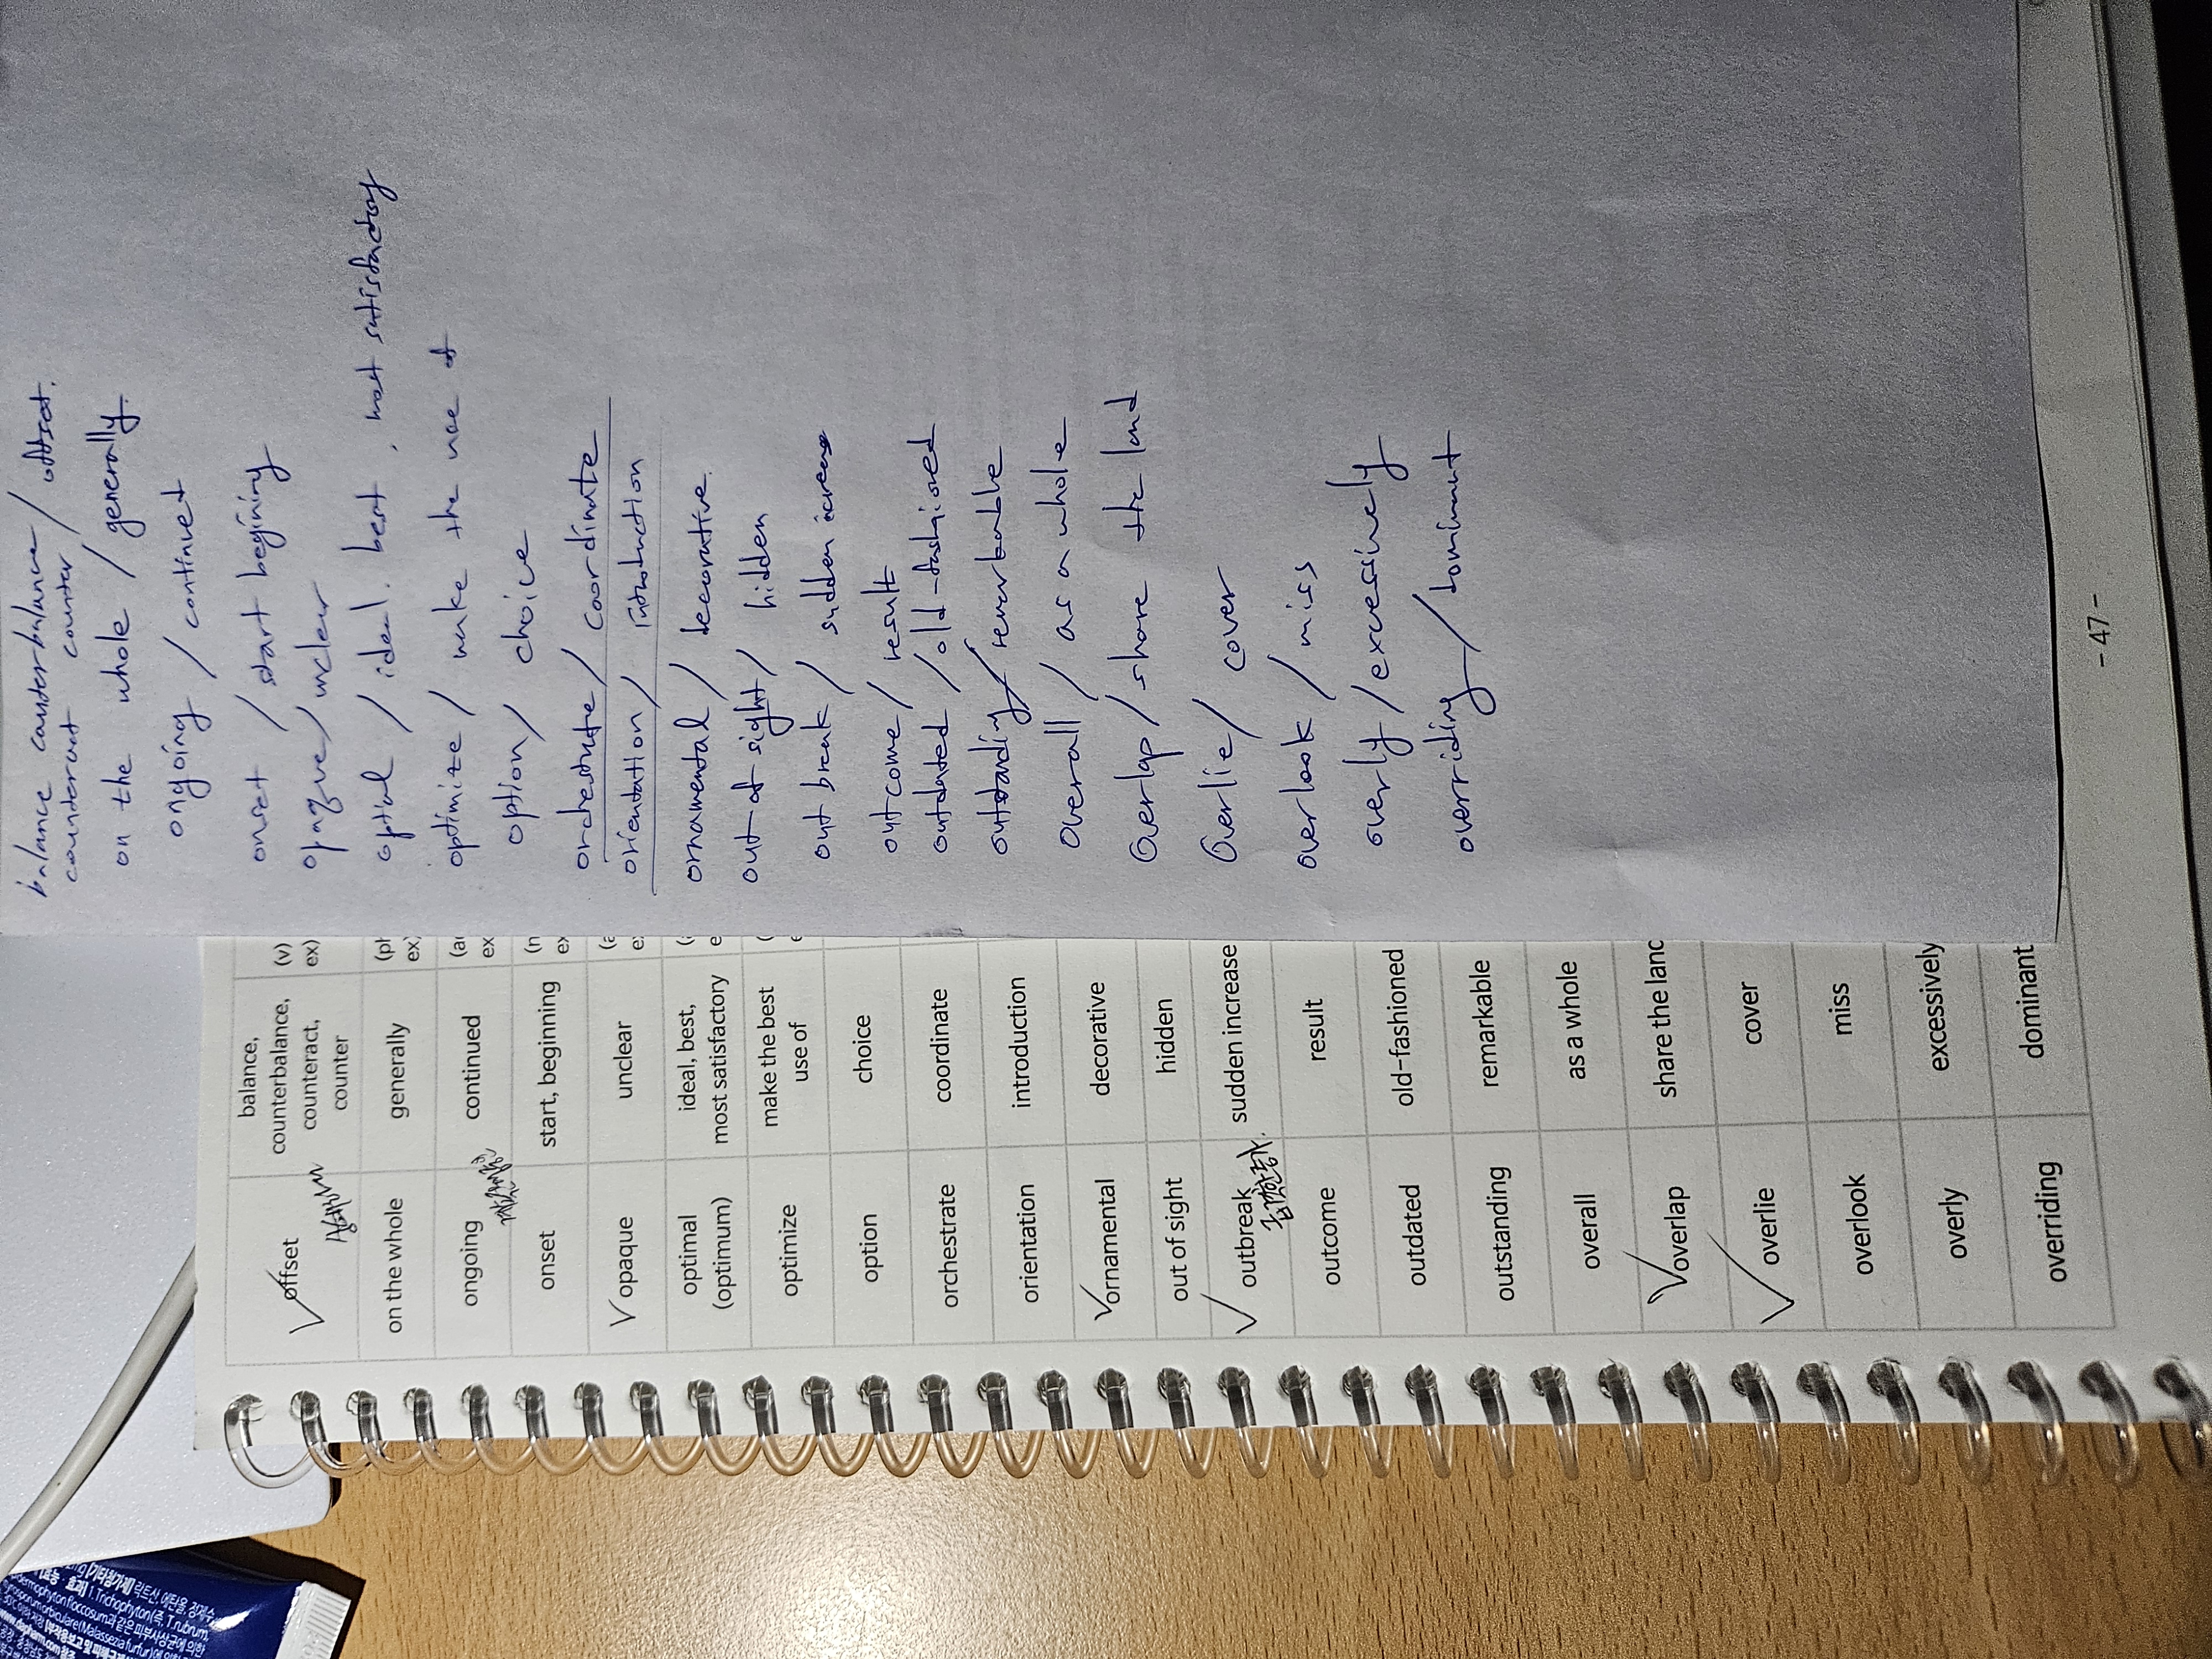 balance counterbalance / offset.
counteract counter
on the whole / generally.
ongoing / continuet
onset / start begining
opaque / unclear
optial / ideal. best, most satisfactory
optimize / make the use of
option / choice
orchestrate / coordinate
orientation / introduction
ornamental / decorative.
out of sight / hidden
out break / sudden
outcome / result
outdated / old-fashioned
outstanding / remarkable
overall / as a whole
Overlap / share the land
Overlie / cover
overlook / miss
overly / excessively
overriding / dominant
offset balance, counterbalance, counteract, counter (v) ex)
on the whole generally (ph ex)
ongoing continued (ad ex
onset start, beginning (n ex
opaque unclear
optimal (optimum) ideal, best, most satisfactory
optimize make the best use of
option choice
orchestrate coordinate
orientation introduction
ornamental decorative
out of sight hidden
outbreak sudden increase
outcome result
outdated old-fashioned
outstanding remarkable
overall as a whole
overlap share the lanc
overlie cover
overlook miss
overly excessively
overriding dominant
- 47 -